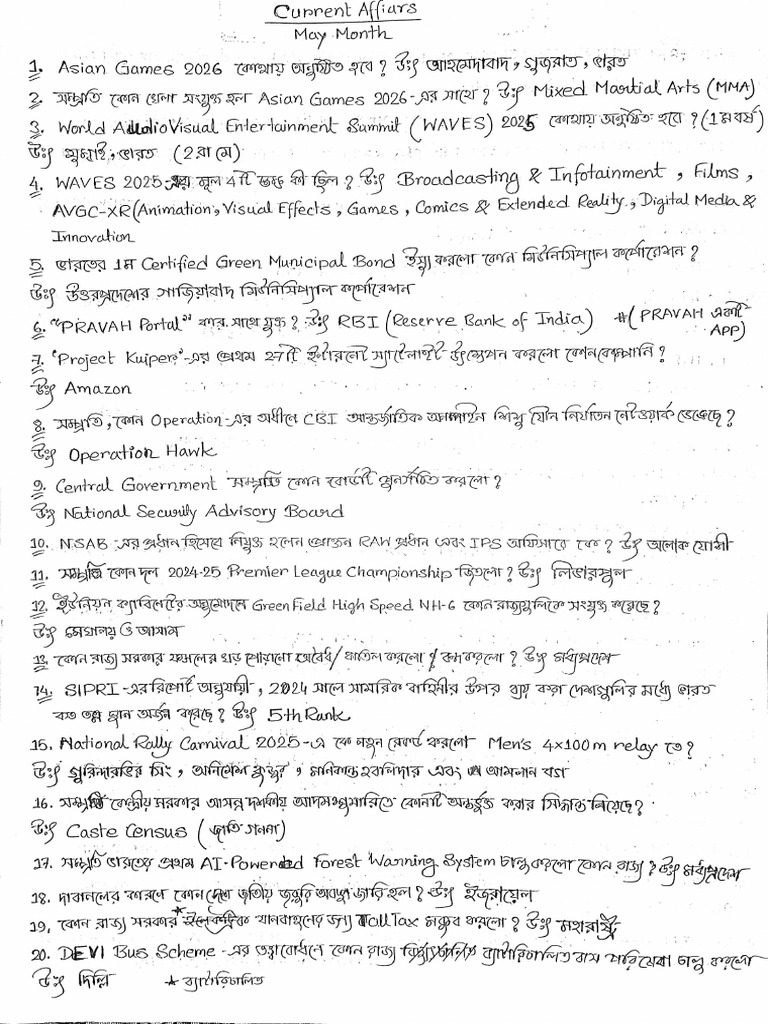 Current Affiars
May Month
1. Asian Games 2026 কোথায় অনুষ্ঠিত হবে ? উঃ আহমেদাবাদ, গুজরাত, ভারত
2. সম্প্রতি কোন খেলা সংযুক্ত হল Asian Games 2026-এর সাথে ? উঃ Mixed Martial Arts (MMA)
3. World AudioVisual Entertainment Summit (WAVES) 2025 কোথায় অনুষ্ঠিত হবে ? (1ম বর্ষ)
উঃ মুম্বাই, ভারত (2রা মে)
4. WAVES 2025-এর মূল 4টি স্তম্ভ কী ছিল ? উঃ Broadcasting & Infotainment , Films ,
AVGC-XR (Animation, Visual Effects , Games , Comics & Extended Reality , Digital Media &
Innovation
5. ভারতের 1ম Certified Green Municipal Bond ইস্যু করলো কোন মিউনিসিপ্যাল কর্পোরেশন ?
উঃ উত্তরপ্রদেশের গাজিয়াবাদ মিউনিসিপ্যাল কর্পোরেশন
6. "PRAVAH Portal" কার সাথে যুক্ত ? উঃ RBI (Reserve Bank of India) #(PRAVAH একটি
APP)
7. 'Project Kuiper'-এর প্রথম 27টি ইন্টারনেট স্যাটেলাইট উৎক্ষেপন করলো কোন কোম্পানি ?
উঃ Amazon
8. সম্প্রতি, কোন Operation-এর অধীনে CBI আন্তর্জাতিক অনলাইন শিশু যৌন নির্যাতন নেটওয়ার্ক ভেঙেছে ?
উঃ Operation Hawk
9. Central Government সম্প্রতি কোন বোর্ডটি পুনর্গঠিত করলো ?
উঃ National Security Advisory Board
10. NSAB-এর প্রধান হিসেবে নিযুক্ত হলেন প্রাক্তন RAW প্রধান এবং IPS অফিসার কে ? উঃ অলোক যোশী
11. সম্প্রতি কোন দল 2024-25 Premier League Championship জিতলো ? উঃ লিভারপুল
12. ইউনিয়ন ক্যাবিনেটের অনুমোদনে Green Field High Speed NH-6 কোন রাজ্যগুলিকে সংযুক্ত করেছে ?
উঃ মেঘালয় ও আসাম
13. কোন রাজ্য সরকার ফসলের খড় পোরানো অবৈধ/ বাতিল করলো / কম করলো ? উঃ মধ্যপ্রদেশ
14. SIPRI-এর রিপোর্ট অনুযায়ী , 2024 সালে সামরিক বাহিনীর উপর ব্যয় করা দেশগুলির মধ্যে ভারত
কত তম স্থান অর্জন করেছে ? উঃ 5th Rank
15. National Rally Carnival 2025-এ কে নতুন রেকর্ড করলো Men's 4x100m relay তে ?
উঃ গুরিন্দারভির সিং , অনিমেশ কুজুর , মনিকান্ত হবলিদার এবং আমলান বরা
16. সম্প্রতি কেন্দ্রীয় সরকার আসন্ন দশকীয় আদমসুমারিতে কোনটি অন্তর্ভুক্ত করার সিদ্ধান্ত নিয়েছে?
উঃ Caste Census (জাতি গণনা)
17. সম্প্রতি ভারতের প্রথম AI-Powered Forest Warning System চালু করলো কোন রাজ্য ? উঃ মধ্যপ্রদেশ
18. দাবানলের কারণে কোন দেশে জাতীয় জরুরি অবস্থা জারি হল ? উঃ ইজরায়েল
19, কোন রাজ্য সরকার *ইলেকট্রিক যানবাহনের জন্য Toll Tax মকুব করলো ? উঃ মহারাষ্ট্র
20. DEVI Bus Scheme -এর তত্ত্বাবোধণে কোন রাজ্য ব্যাটারিচালিত বাস পরিষেবা চালু করলো
উঃ দিল্লি ★ ব্যাটারিচালিত